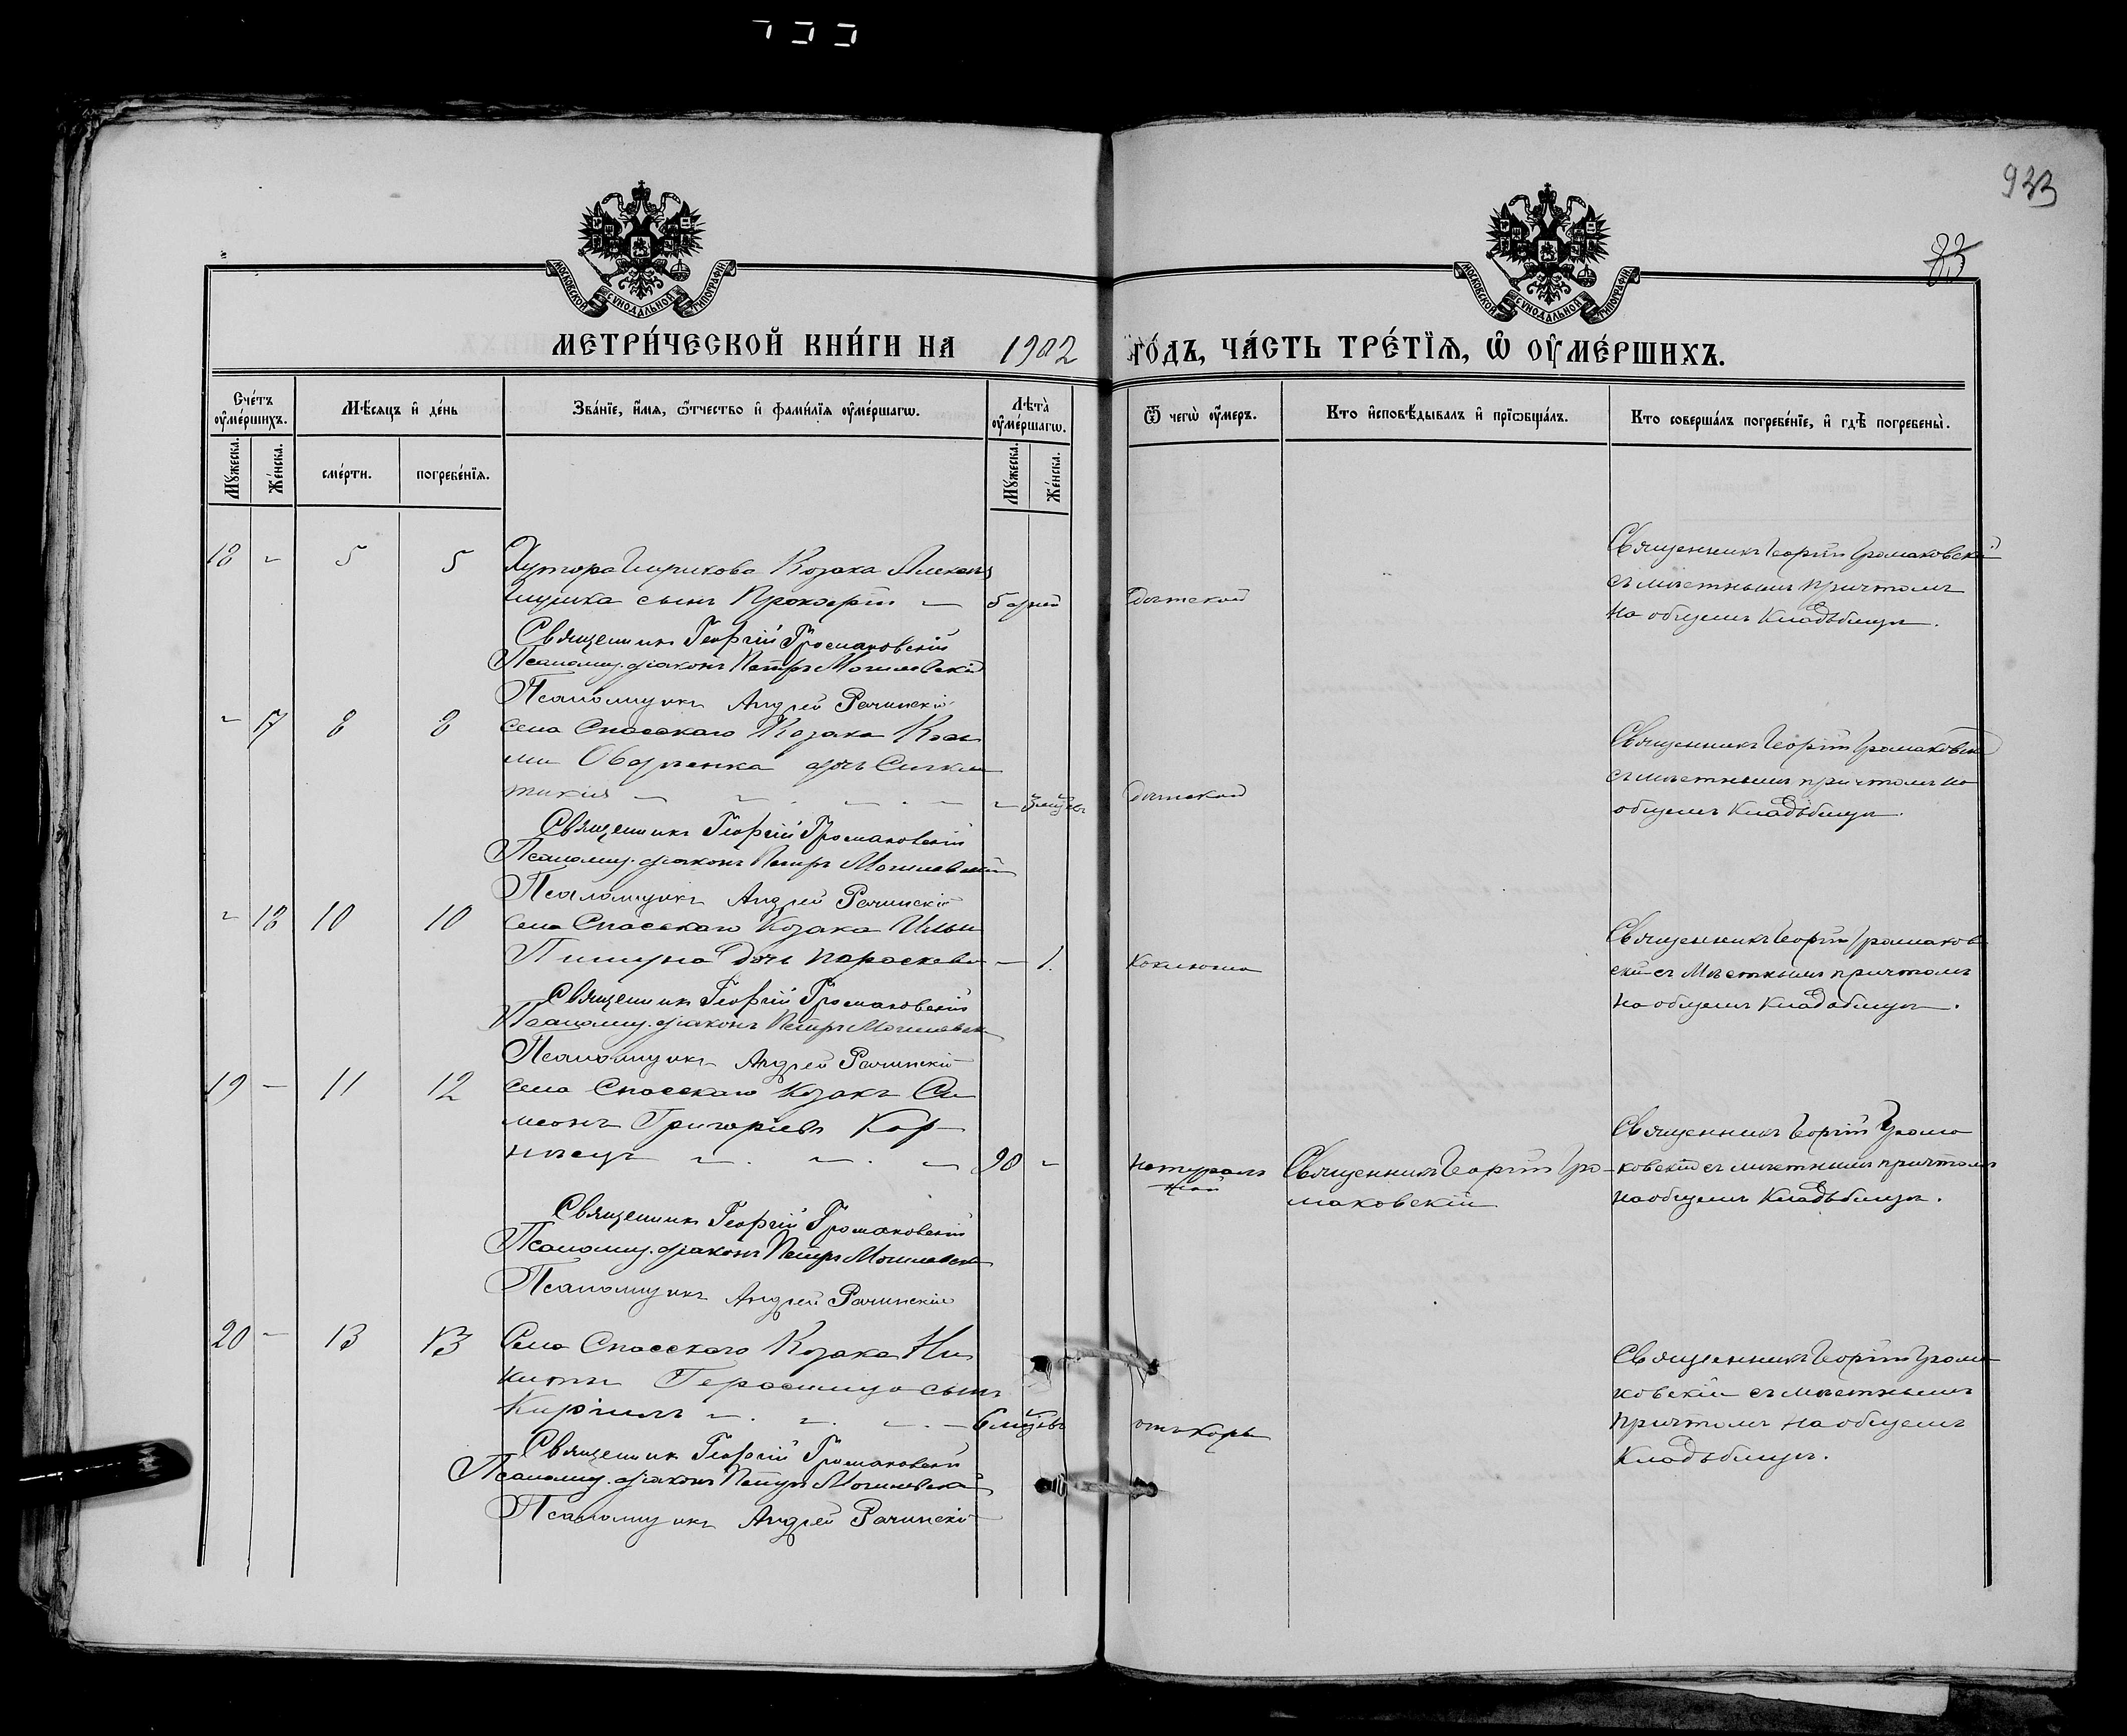 933
83
МОСКОВСКОЙ СѴНОДАЛЬНОЙ ТИПОГРАФІИ
МОСКОВСКОЙ СѴНОДАЛЬНОЙ ТИПОГРАФІИ
МЕТРИ́ЧЕСКОЙ КНИ́ГИ НА 1902 ГО́ДЪ, ЧА́СТЬ ТРЕ́ТЇѦ, Ѡ҆ ОУ҆МЕ́РШИХЪ.
Сче́тъ оу҆ме́ршихъ.
Мѣ́сѧцъ и҆ де́нь
Зва́нїе, и҆́мѧ, ѻ҆́тчество и҆ фами́лїѧ оу҆ме́ршагѡ.
Лѣ̑та̀ оу҆ме́ршагѡ.
Ѿ чегѡ̀ оу҆́меръ.
Кто̀ и҆сповѣ́дывалъ и҆ прїѡбща́лъ.
Кто̀ соверша́лъ погребе́нїе, и҆ гдѣ̀ погребены̀.
Мꙋ́жеска. Же́нска. сме́рти. погребе́нїѧ. Мꙋ́жеска. Же́нска.
18 - 5 5 Хутора Козака
сынъ Прокофій - 5 дней
Священникъ Георгій Громаковскій
Псаломщ. діаконъ Петръ Могилевскій
Псаломщикъ Андрей Рачинскій
Дѣтской
Священникъ Георгій Громаковскій
съ мѣстнымъ причтомъ
на общемъ кладбищѣ.
- 17 8 8 Села Спасскаго Козака Кось
мы дочь Синкли
тикія - - - - - 3 мѣс
Священникъ Георгій Громаковскій
Псаломщ. діаконъ Петръ Могилевскій
Псаломщикъ Андрей Рачинскій
Дѣтской
Священникъ Георгій Громаковскій
съ мѣстнымъ причтомъ на
общемъ кладбищѣ.
- 18 10 10 Села Спасскаго Козака Ильи
дочь Параскева - 1.
Священникъ Георгій Громаковскій
Псаломщ. діаконъ Петръ Могилевскій
Псаломщикъ Андрей Рачинскій
Коклюша
Священникъ Георгій Громаков
скій съ мѣстнымъ причтомъ
на общемъ кладбищѣ.
19 - 11 12 Села Спасскаго Козакъ Си
меонъ Григоріевъ Кор
нѣецъ - - - 90 -
Священникъ Георгій Громаковскій
Псаломщ. діаконъ Петръ Могилевскій
Псаломщикъ Андрей Рачинскій
Натураль
ной
Священникъ Георгій Гро-
маковскій
Священникъ Георгій Грома
ковскій съ мѣстнымъ причтомъ
на общемъ кладбищѣ.
20 - 13 13 Села Спасскаго Козака Ни
киты сынъ
Кириллъ - - - - 6 мѣс
Священникъ Георгій Громаковскій
Псаломщ. діаконъ Петръ Могилевскій
Псаломщикъ Андрей Рачинскій
отъ кори
Священникъ Георгій Грома
ковскій съ мѣстнымъ
причтомъ на общемъ
кладбищѣ.